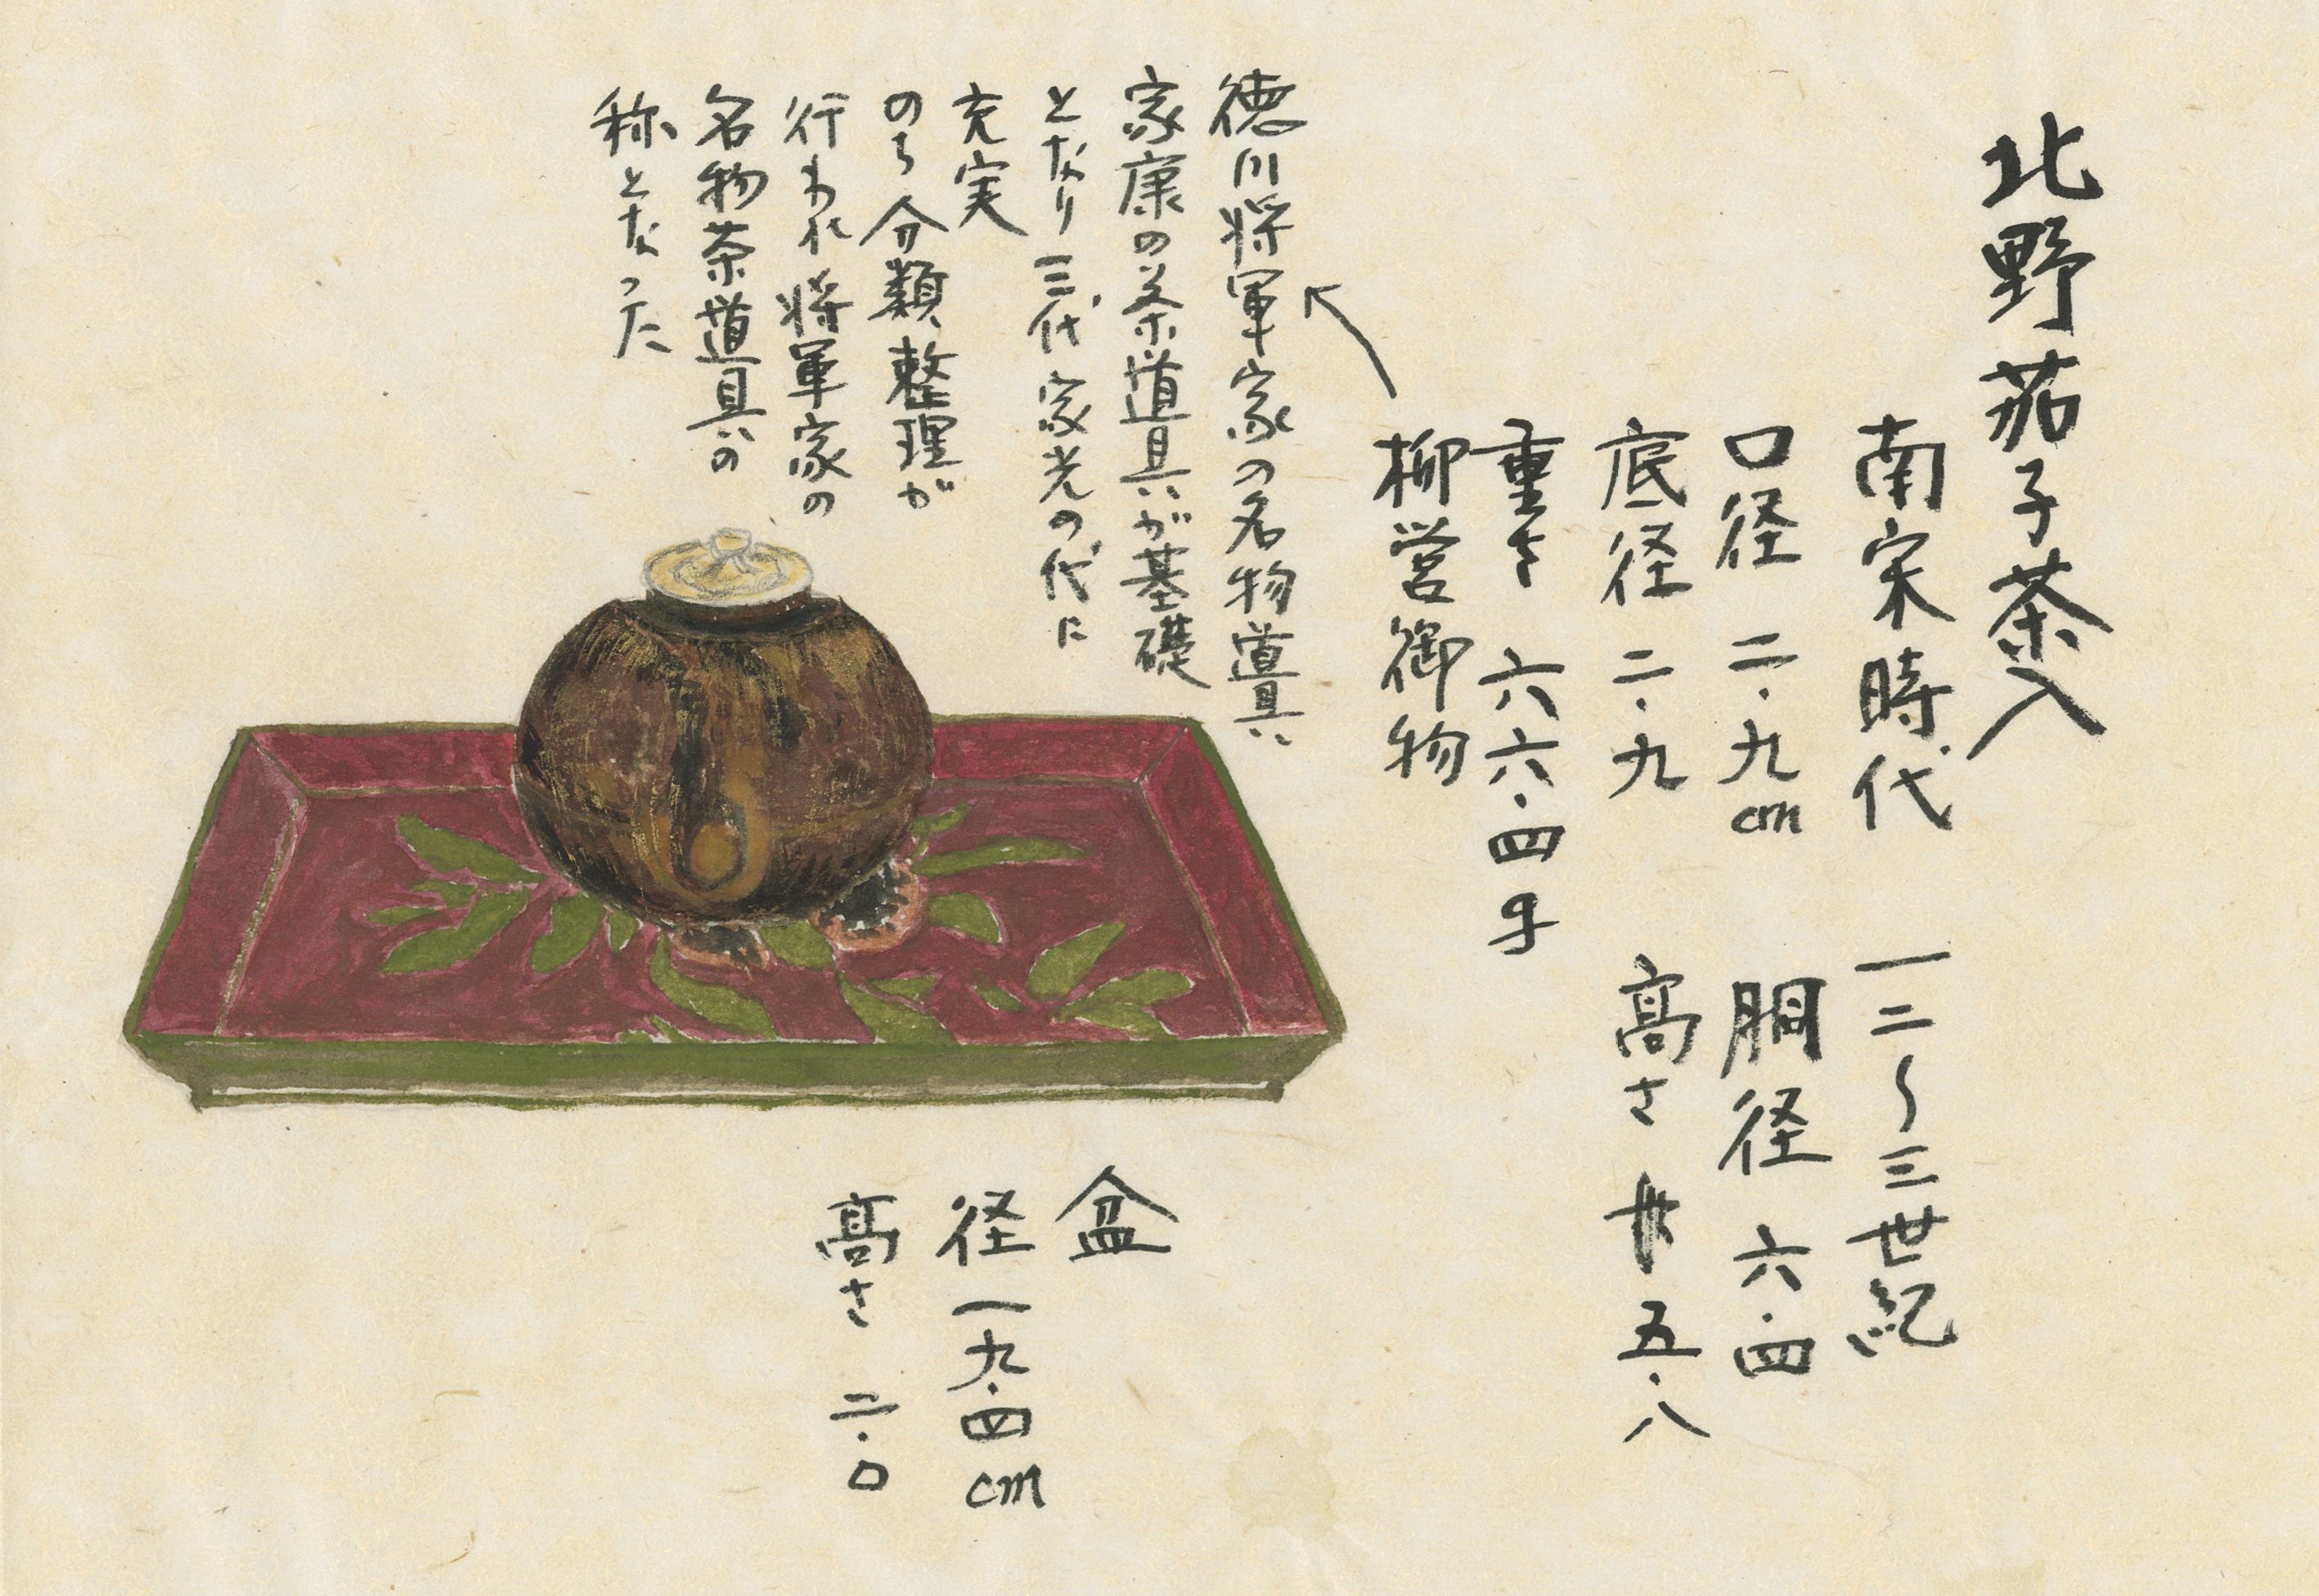 北野茄子茶入
南宋時代 一二〜三世紀
口径 二・九cm 胴径 六・四
底径 二・九 高さ 五・八
重さ 六六・四g
柳営御物
徳川将軍家の名物道具
家康の茶道具が基礎
となり三代家光の代に
充実
のち分類整理が
行われ将軍家の
名物茶道具の
称となった
盆
径 一九・四cm
高さ 二・〇